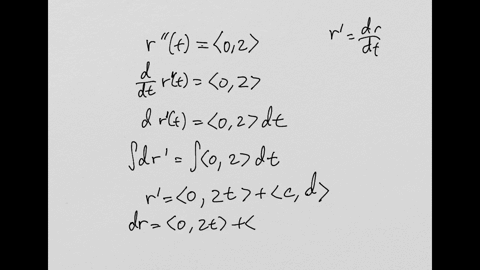 r''(t) = <0,2>
r' = dr/dt
d/dt r'(t) = <0,2>
d r'(t) = <0,2> dt
∫dr' = ∫<0,2> dt
r' = <0, 2t> + <c, d>
dr = <0, 2t> + <